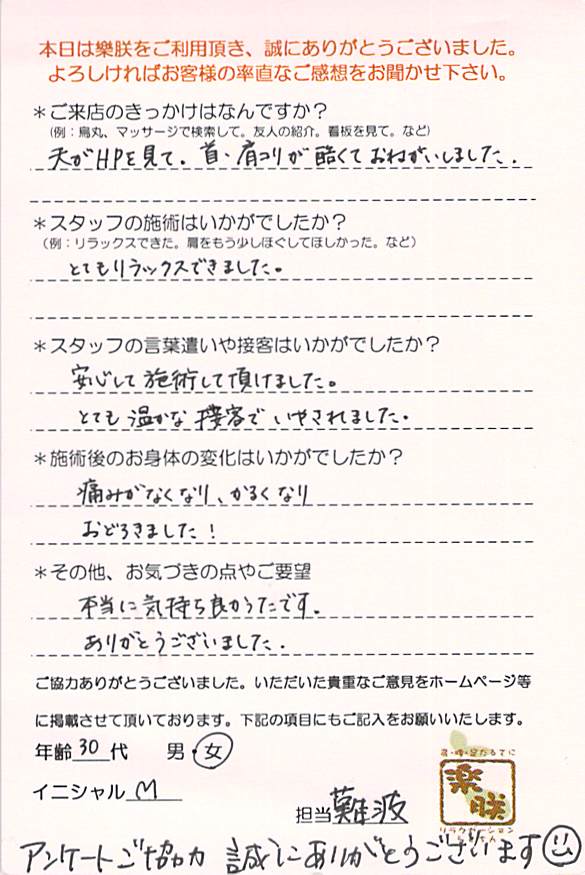 本日は樂朕をご利用頂き、誠にありがとうございました。
よろしければお客様の率直なご感想をお聞かせ下さい。
＊ご来店のきっかけはなんですか？
（例：烏丸、マッサージで検索して。友人の紹介。看板を見て。など）
夫がHPを見て。首・肩コリが酷くておねがいしました。
＊スタッフの施術はいかがでしたか？
（例：リラックスできた。肩をもう少しほぐしてほしかった。など）
とてもリラックスできました。
＊スタッフの言葉遣いや接客はいかがでしたか？
安心して施術して頂けました。
とても温かな接客でいやされました。
＊施術後のお身体の変化はいかがでしたか？
痛みがなくなり、かるくなり
おどろきました！
＊その他、お気づきの点やご要望
本当に気持ち良かったです。
ありがとうございました。
ご協力ありがとうございました。いただいた貴重なご意見をホームページ等
に掲載させて頂いております。下記の項目にもご記入をお願いいたします。
年齢30代 男・女
イニシャル M
担当 難波
樂朕
アンケートご協力 誠にありがとうございます